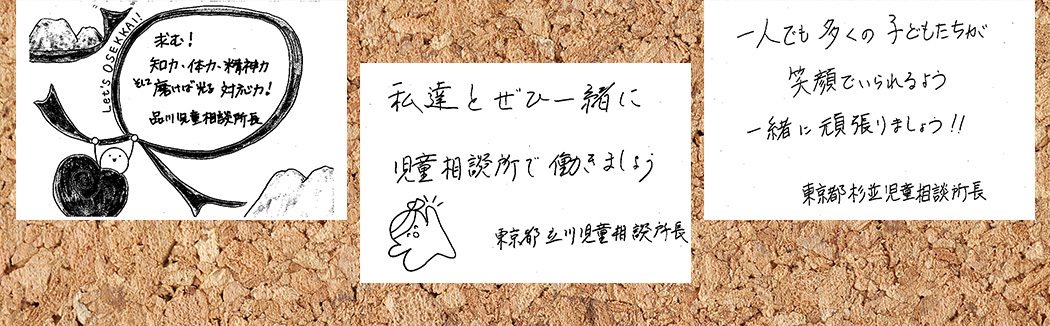 Let's OSEKKAI!!
求む!
知力、体力、精神力
そして磨けば光る対応力!
品川児童相談所長
私達とぜひ一緒に
児童相談所で働きましょう
東京都立川児童相談所長
一人でも多くの子どもたちが
笑顔でいられるよう
一緒に頑張りましょう!!
東京都杉並児童相談所長